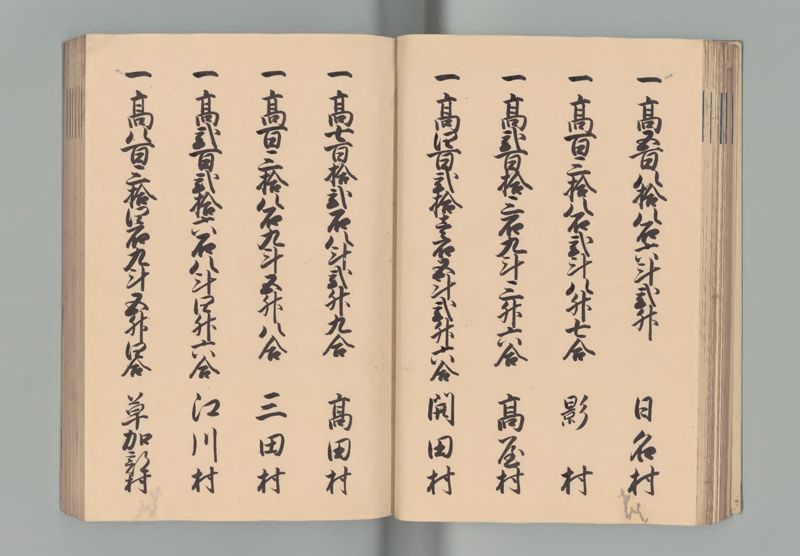 一 高五百八拾八石六斗弐升 日名村
一 高百三拾八石弐斗八升七合 影村
一 高弐百拾三石九斗三升六合 高屋村
一 高四百弐拾壱石五斗弐升六合 関田村
一 高七百拾弐石八斗弐升九合 高田村
一 高百三拾八石九斗五升八合 三田村
一 高弐百弐拾六石八斗四升六合 江川村
一 高八百三拾四石九斗五升四合 草加部村